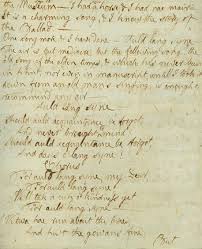 the Museum — I had a horse & I had nae mair.
It is a charming song, & I know the story of
the Ballad.
One song more & I have done. — Auld lang syne —
The air is but mediocre; but the following song, the
old song of the olden times, & which has never been
in print, nor even in manuscript, until I took it
down from an old man's singing, is enough to
recommend any air
Auld lang syne
Should auld acquaintance be forgot,
And never brought to mind?
Should auld acquaintance be forgot,
And days o' lang syne!
Chorus
For auld lang syne, my Dear,
For auld lang syne,
We'll tak a cup o' kindness yet
For auld lang syne
We twa hae run about the braes,
And pu't the gowans fine;
But